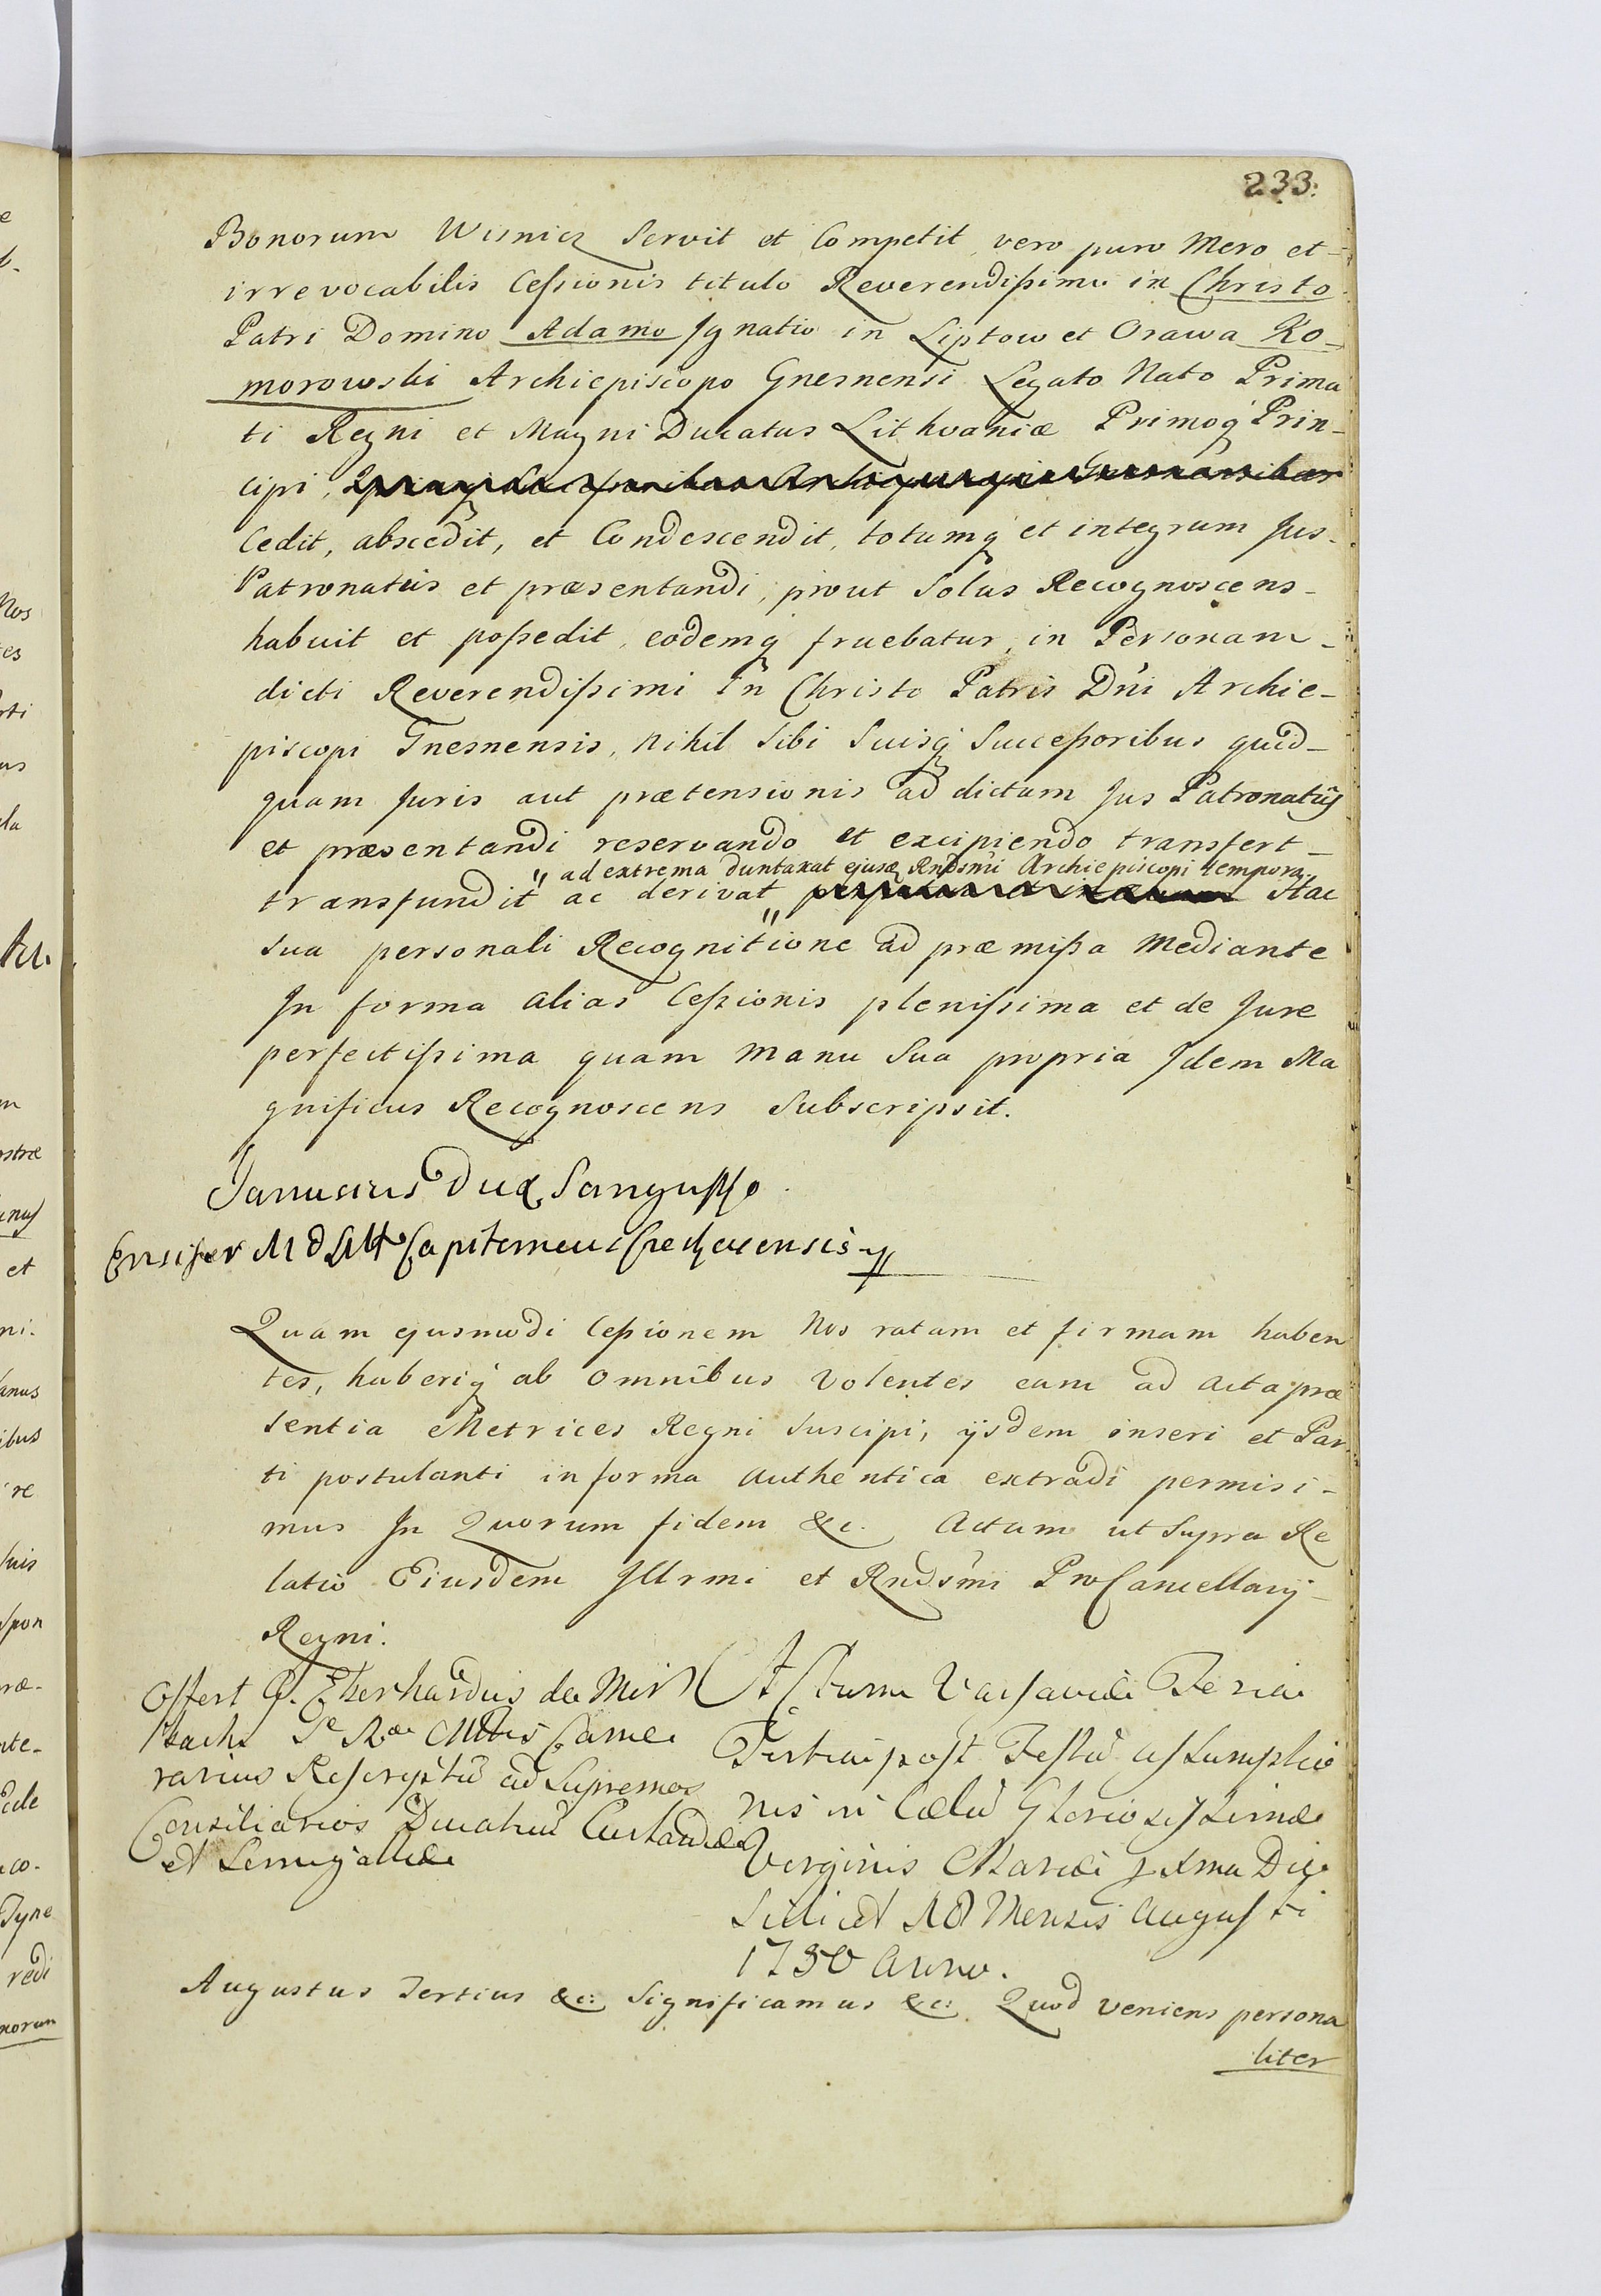 233.
Bonorum Wisnicz Servit et Competit, vero puro Mero et
irrevocabilis Cessionis titulo Reverendissimo in Christo
Patri Domino Adamo Ignatio in Liptow et Orawa Ko-
morowski Archiepiscopo Gnesnensi Legato Nato Prima
ti Regni et Magni Ducatus Lithvaniæ Primoq Prin-
cipi,
Cedit, abscedit, et Condescendit, totumq et integrum Jus
Patronatûs et præsentandi, prout Solus Recognoscens
habuit et possedit, eodemq fruebatur, in Personam
dicti Reverendissimi in Christo Patris Dńi Archie-
piscopi Gnesnensis, nihil Sibi Suisq Successoribus quid-
quam Juris aut prætensionis ad dictum Jus Patronatûs
et præsentandi reservando et excipiendo transfert
ad extrema duntaxat ejusq Rndsmi Archiepiscopi tempora
transfundit ac derivat Hac
sua personali Recognitione ad præmissa mediante
In forma alias Cessionis plenissima et de Jure
perfectissima quam manu Sua propria Idem Ma
gnificus Recognoscens Subscripsit.
Janussius Dux Sangussko
Ensifer M D Litt Capitaneus Crecheciensis
Quam ejusmodi Cessionem Nos ratam et firmam haben
tes, haberiq ab omnibus volentes eam ad acta præ
sentia Metrices Regni Suscipi, ijsdem inseri et Par
ti postulanti in forma authentica extradi permisi-
mus In Quorum fidem &c. Actum ut Supra Re
latio Eiusdem Illrmi et Rndsmi ProCancellarij
Regni.
Offert G. Eberhardus de Mir
bach S R Mttis Came
rarius Rescriptū ad Supremos
Consiliarios Ducatuū Curlandiæ
et Semigalliæ
Actum Varsaviæ Feria
Tertia post Festū assumptio
nis in Cælū Gloriosissimæ
Virginis Mariæ proxima Die
Scilicet Mensis Augusti
1750 Anno.
Augustus Tertius &c: Significamus &c: Quod veniens persona
liter